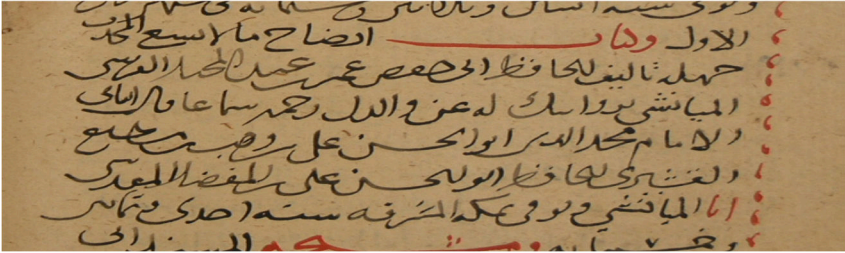 وتوفى سنة
الاول وكتاب ايضاح ما لا يسع المحدث
جهله تاليف للحافظ ابى حفص عمر بن عبد المجيد القرشى
الميانشى بروايتك له عن والدك رحمه سماعا قال انبانى
والامام محمد الدين ابو الحسن على بن وهب بن مطيع
والقشيرى للحافظ ابو الحسن على بن المفضل المقدسى
انا الميانشى وتوفى بمكة المشرفة سنة احدى وثمانين
وخمسمايه